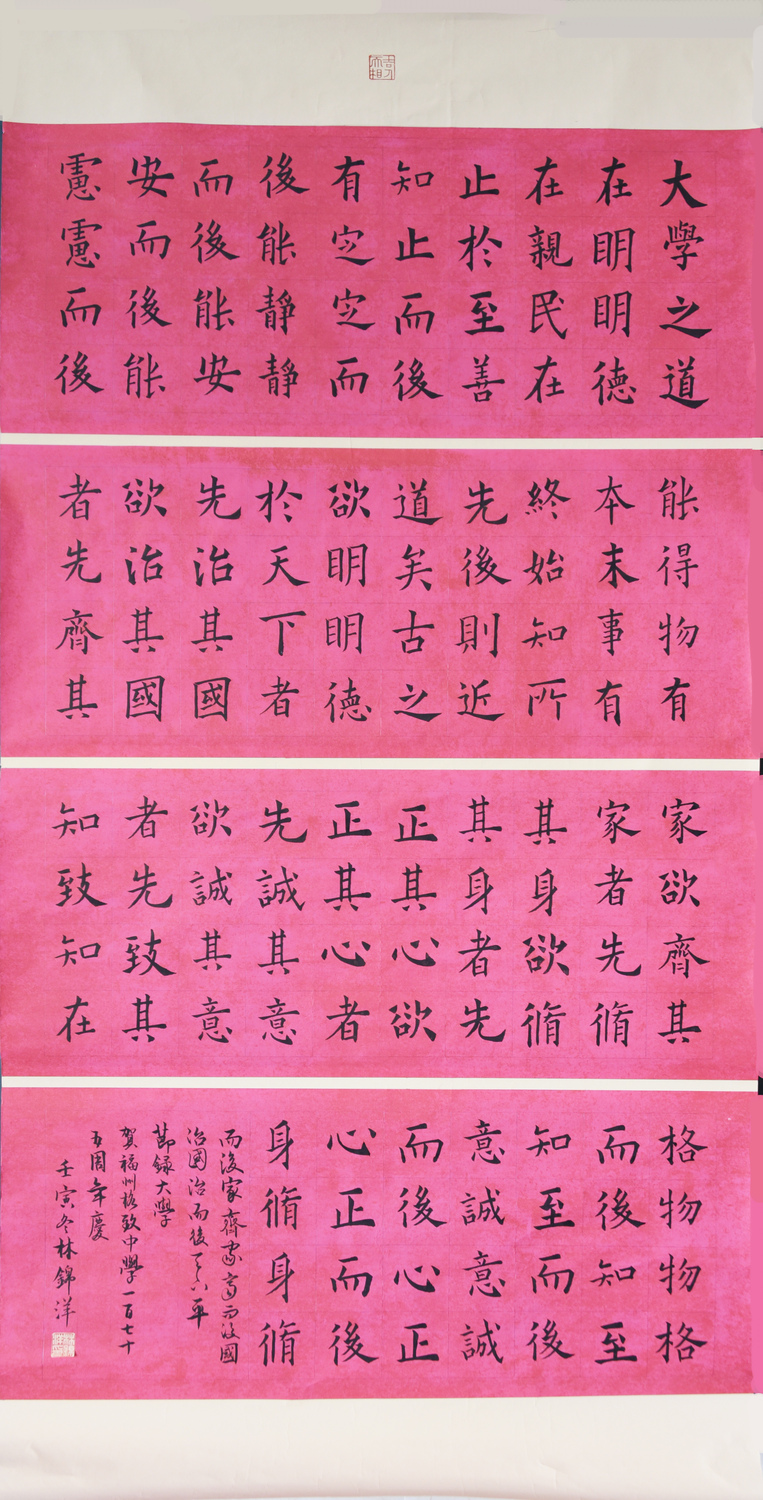 吉人天相
大學之道
在眀眀德
在親民在
止於至善
知止而後
有定定而
後能靜靜
而後能安
安而後能
慮慮而後
能得物有
本末事有
終始知所
先後則近
道矣古之
欲眀眀德
於天下者
先治其國
欲治其國
者先齊其
家欲齊其
家者先脩
其身欲脩
其身者先
正其心欲
正其心者
先誠其意
欲誠其意
者先致其
知致知在
格物物格
而後知至
知至而後
意誠意誠
而後心正
心正而後
身脩身脩
而後家齊家齊而後國
治國治而後天下平
節錄大學
賀福州格致中學一百七十
五周年慶
壬寅冬林錦洋